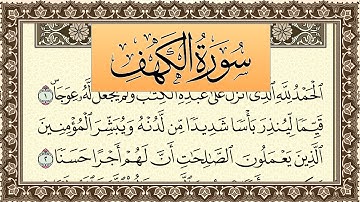 سُورَةُ الكَهْفِ
الْحَمْدُ لِلَّهِ الَّذِى أَنزَلَ عَلَى عَبْدِهِ الْكِتَٰبَ وَلَمْ يَجْعَل لَّهُۥ عِوَجَا ۜ ١
قَيِّمًا لِّيُنذِرَ بَأْسًا شَدِيدًا مِّن لَّدُنْهُ وَيُبَشِّرَ الْمُؤْمِنِينَ
الَّذِينَ يَعْمَلُونَ الصَّٰلِحَٰتِ أَنَّ لَهُمْ أَجْرًا حَسَنًا ٢